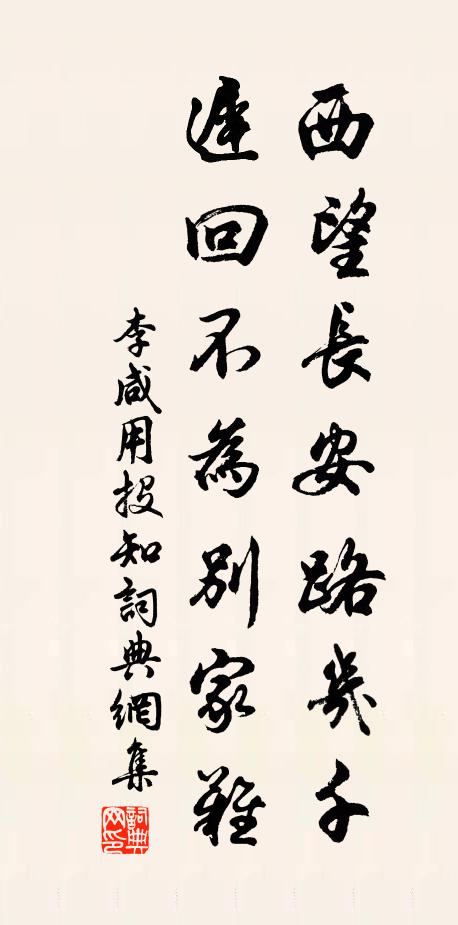 西望長安路幾千
遲回不為別家難
李咸用投知詞典網集
詞典網印